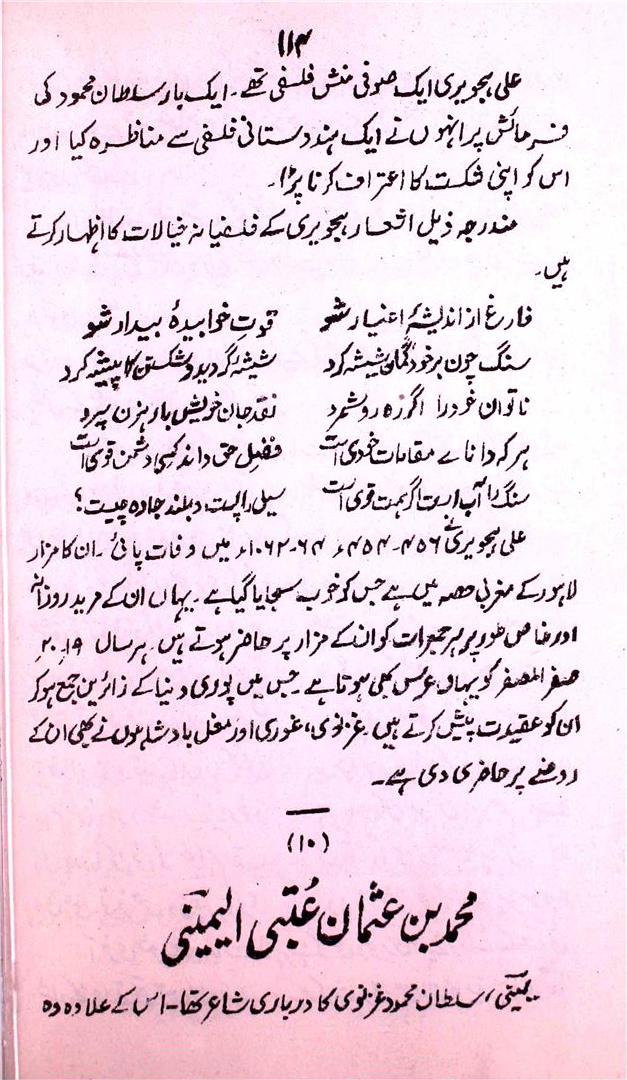 ۱۱۴
علی ہجویری ایک صوفی منش فلسفی تھے۔ ایک بار سلطان محمود کی
فرمائش پر انہوں نے ایک ہندوستانی فلسفی سے مناظرہ کیا اور
اس کو اپنی شکست کا اعتراف کرنا پڑا۔
مندرجہ ذیل اشعار ہجویری کے فلسفیانہ خیالات کا اظہار کرتے
ہیں۔
فارغ از اندیشۂ اغیار شو قوتِ خوابیدۂ بیدار شو
سنگ چوں بر خود گماں شیشہ کرد شیشہ گردید و شکستن کا پیشہ کرد
ناتواں خود را اگر رہ رو شمرد نقد جان خویش با رہزن سپرد
ہر کہ دانائے مقامات خودی است فضل حق داند کسی دشمن قوی است
سنگ راہ آب است اگر ہمت قوی است سیل را پست و بلند جادہ چیست؟
علی ہجویری نے ۴۵۶-۴۵۴ء ۶۴-۱۰۶۲ء میں وفات پائی۔ ان کا مزار
لاہور کے مغربی حصہ میں ہے جس کو خوب سجایا گیا ہے۔ یہاں ان کے مرید روزانہ
اور خاص طور پر ہر جمعرات کو ان کے مزار پر حاضر ہوتے ہیں۔ ہر سال ۱۹، ۲۰،
صفر المصفر کو یہاں عرس بھی ہوتا ہے۔ جس میں پوری دنیا کے زائرین جمع ہو کر
ان کو عقیدت پیش کرتے ہیں۔ غزنوی، غوری اور مغل بادشاہوں نے بھی ان کے
روضے پر حاضری دی ہے۔
(۱۰)
محمد بن عثمان عُتبی الیمینی
یمینی، سلطان محمود غزنوی کا درباری شاعر تھا۔ اس کے علاوہ وہ